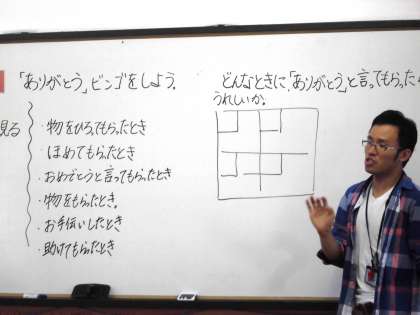 「ありがとう」ビンゴをしよう。
見る
・物をひろってもらったとき
・ほめてもらったとき
・おめでとうと言ってもらったとき
・物をもらったとき。
・お手伝いしたとき
・助けてもらったとき
どんなときに、「ありがとう」と言ってもらったら
うれしいか。